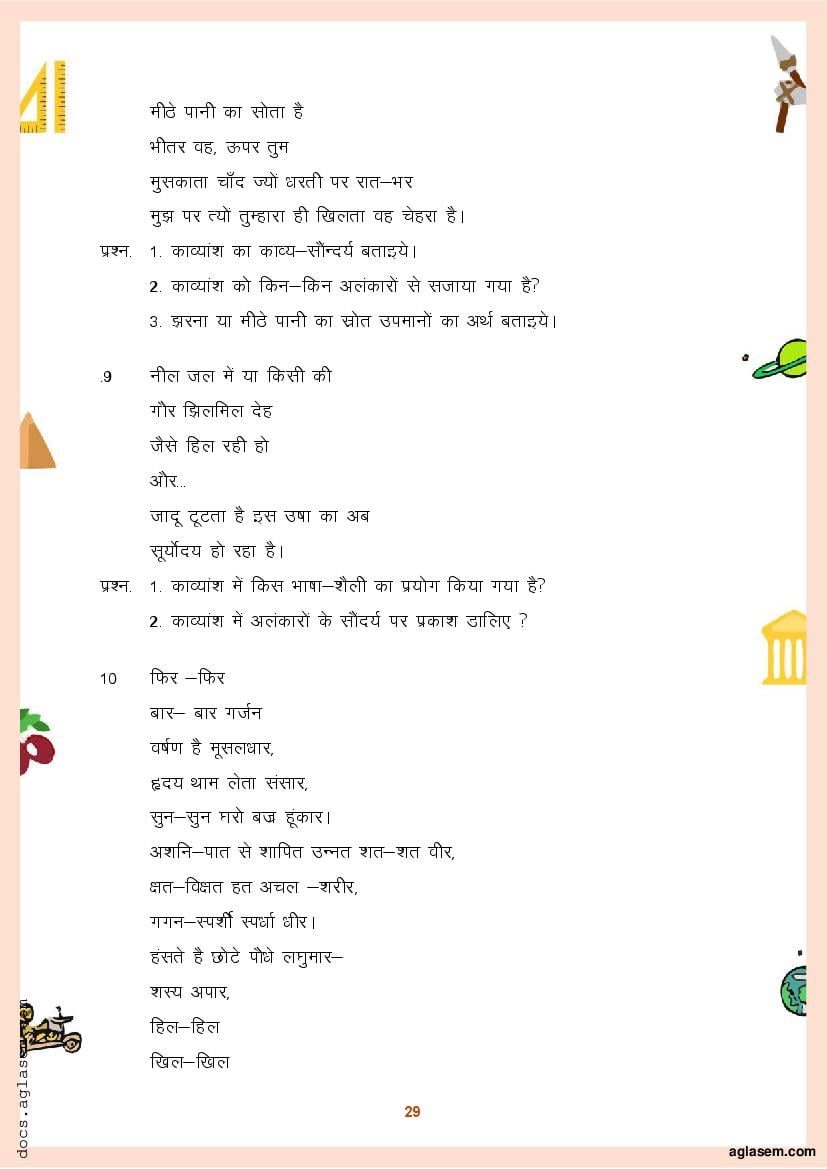 मीठे पानी का सोता है
भीतर वह, ऊपर तुम
मुसकाता चाँद ज्यों धरती पर रात–भर
मुझ पर त्यों तुम्हारा ही खिलता वह चेहरा है।
प्रश्न. 1. काव्यांश का काव्य–सौंन्दर्य बताइये।
2. काव्यांश को किन–किन अलंकारों से सजाया गया है?
3. झरना या मीठे पानी का स्रोत उपमानों का अर्थ बताइये।
.9 नील जल में या किसी की
गौर झिलमिल देह
जैसे हिल रही हो
और...
जादू टूटता है इस उषा का अब
सूर्योदय हो रहा है।
प्रश्न. 1. काव्यांश में किस भाषा–शैली का प्रयोग किया गया है?
2. काव्यांश में अलंकारों के सौंदर्य पर प्रकाश डालिए ?
10 फिर –फिर
बार– बार गर्जन
वर्षण है मूसलधार,
हृदय थाम लेता संसार,
सुन–सुन घरो बज्र हूंकार।
अशनि–पात से शापित उन्नत शत–शत वीर,
क्षत–विक्षत हत अचल –शरीर,
गगन–स्पर्शी स्पर्धा धीर।
हंसते है छोटे पौधे लघुमार–
शस्य अपार,
हिल–हिल
खिल–खिल
29
docs.aglasem.com
aglasem.com